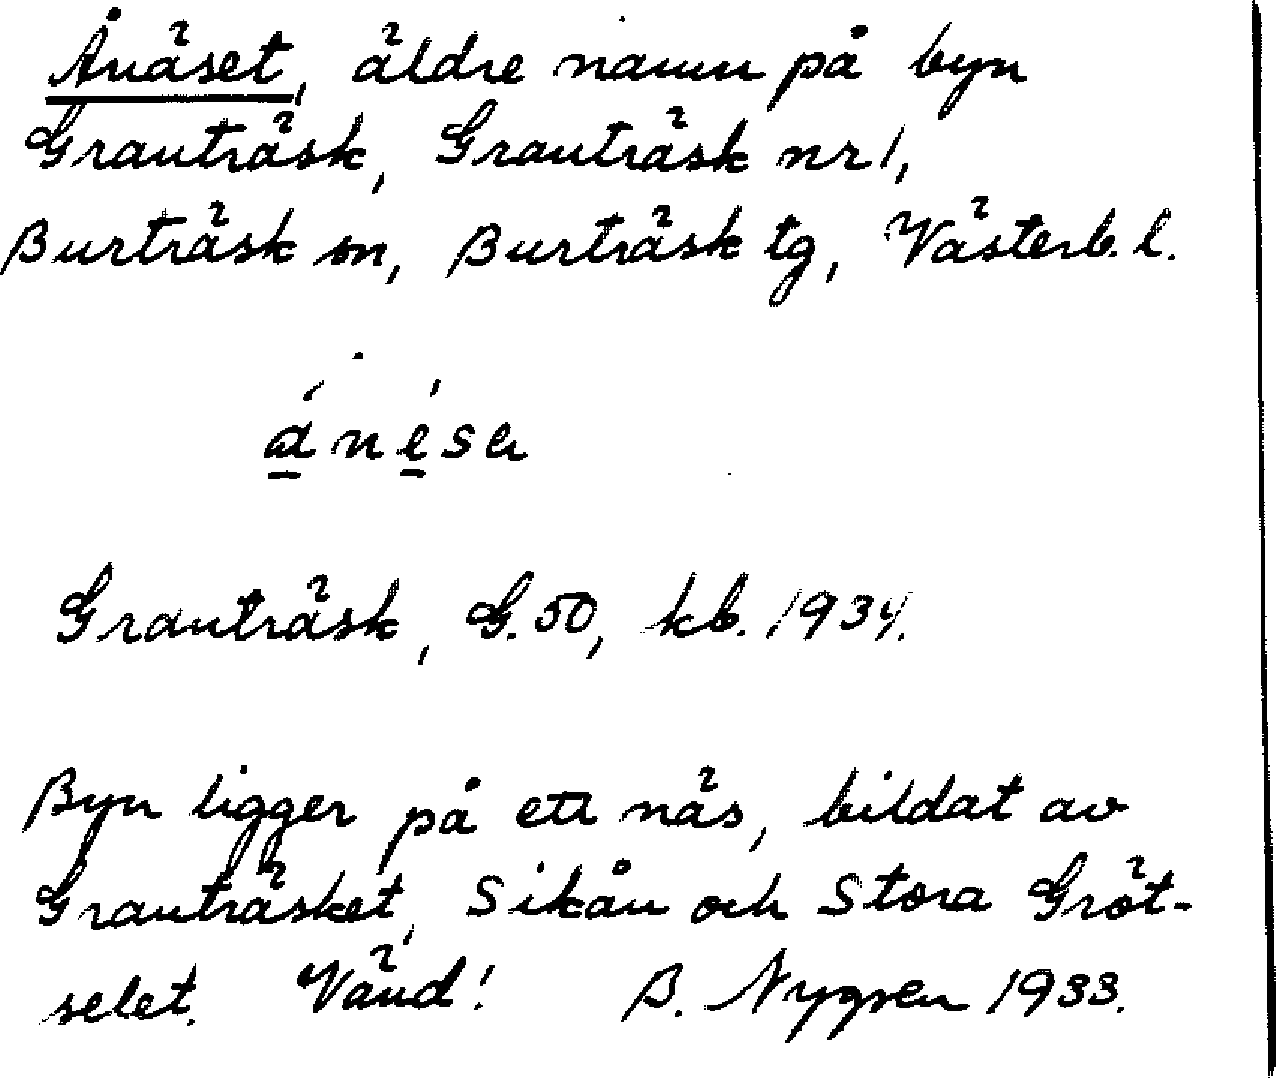 Ånäset, äldre namn på byn
Granträsk, Granträsk nr 1,
Burträsk sn, Burträsk tg, Västerb. l.
Granträsk, G. 50, kb. 1934.
Byn ligger på ett näs, bildat av
Granträsket, Sikån och Stora Gröt-
selet. Vänd! B. Nygren 1933.